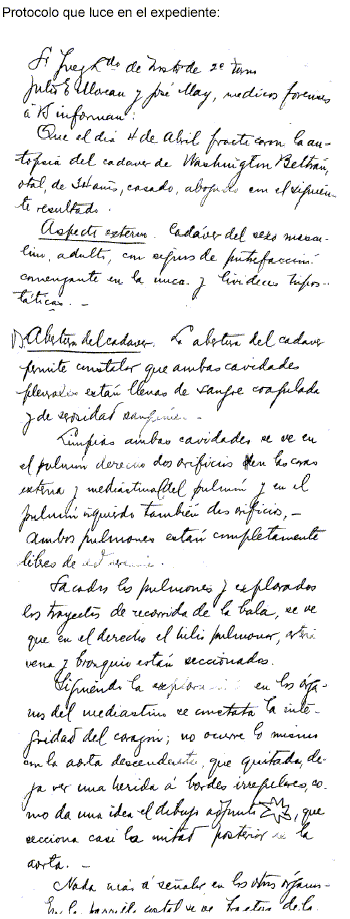 Protocolo que luce en el expediente:
Sr Juez Ldo de Instor de 2º turno
Julio E Moreau y José May, medicos forenses
á VS informan:
Que el dia 4 de Abril practicaron la au-
topsia del cadaver de Washington Beltrán,
otal, de 34 años, casado, abogado con el siguien-
te resultado.
Aspecto externo. Cadáver del sexo mascu-
lino, adulto, con signos de putrefacción
comenzante en la nuca y livideces hipos-
táticas. -
Abertura del cadaver. La abertura del cadaver
permite constatar que ambas cavidades
pleurales están llenas de sangre coagulada
y de serosidad
Limpias ambas cavidades se ve en
el pulmon derecho dos orificios en las caras
externa y mediastinal del pulmón y en el
pulmón izquierdo también dos orificios, -
ambos pulmones están completamente
libres de
Sacados los pulmones y explorados
los trayectos de recorrida de la bala, se ve
que en el derecho el hilio pulmonar, arteria
vena y bronquio están seccionados.
Siguiendo la exploración en los órga-
nos del mediastino se constata la inte-
gridad del corazón; no ocurre lo mismo
con la aorta descendente, que quitada, de-
ja ver una herida á bordes irregulares, co-
mo da una idea el dibujo adjunto, que
secciona casi la mitad posterior de la
aorta. -
Nada más á señalar en los otros órganos -
En la parrilla costal se ve detrás de la